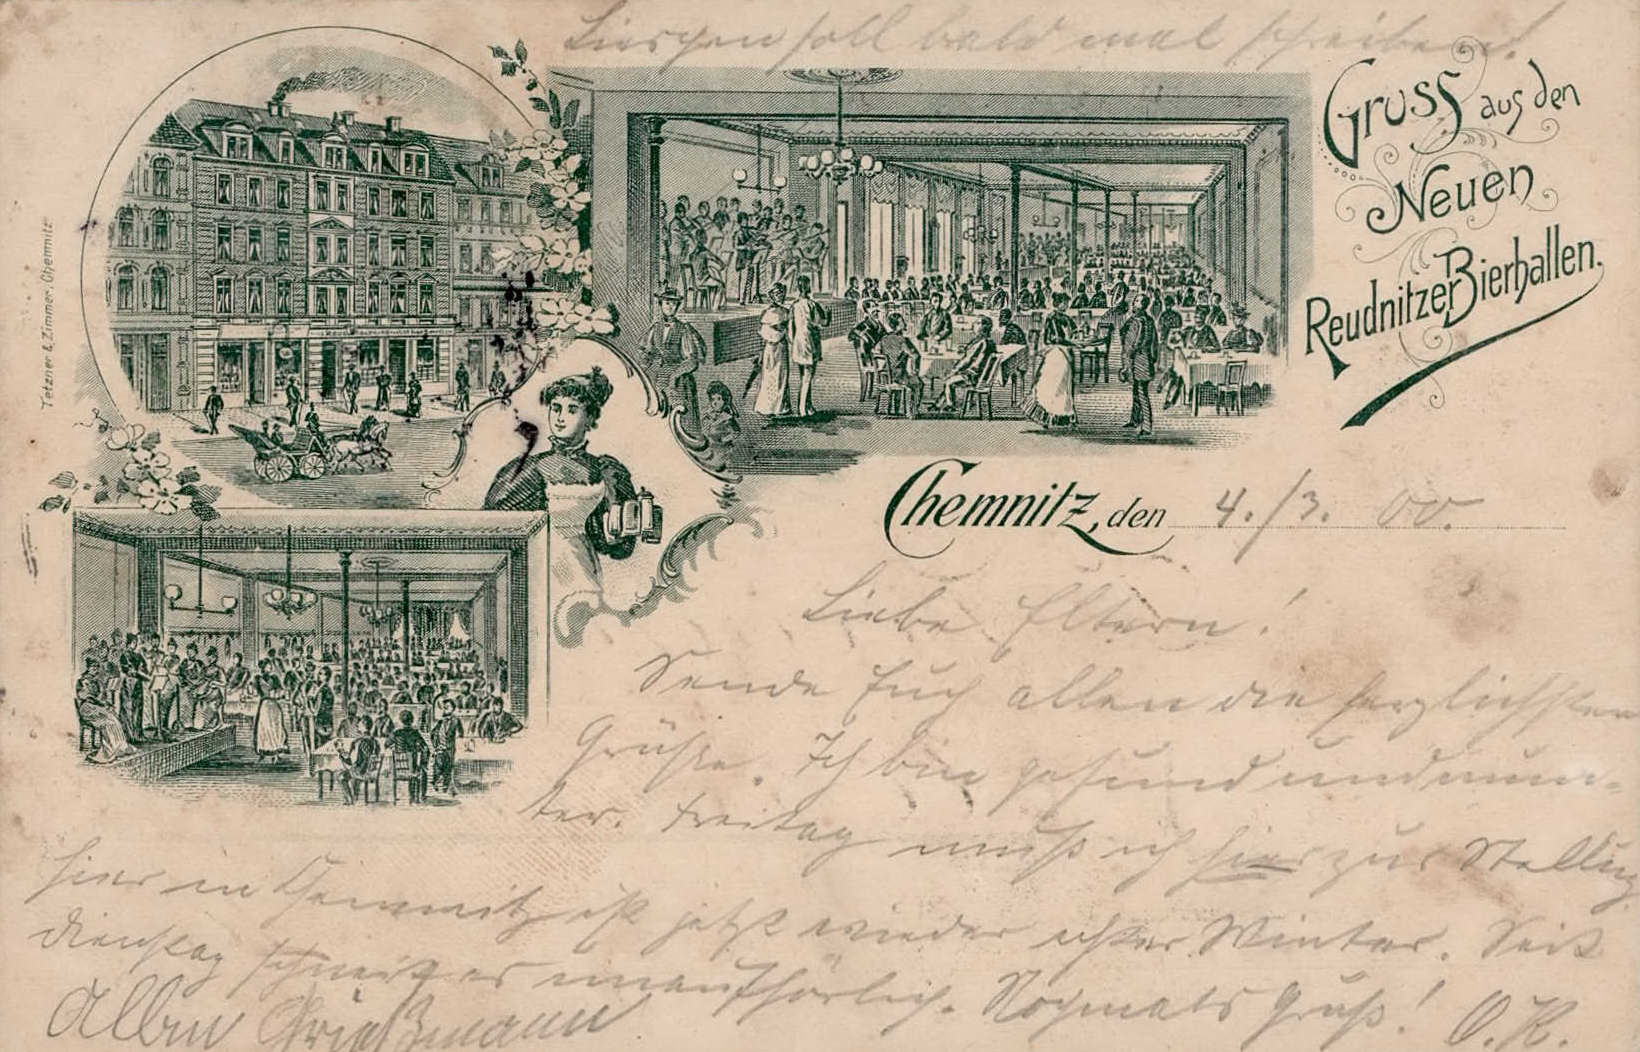 Liesgen soll bald mal schreiben.
Gruss aus den
Neuen
Reudnitzer Bierhallen.
Tetzner & Zimmer, Chemnitz
Chemnitz, den 4./3. 00.
Liebe Eltern!
Sende Euch allen die herzlichsten
Grüße. Ich bin gesund und mun-
ter. Freitag muß ich hier zur Stellung
hier in Chemnitz ist jetzt wieder echter Winter. Seit
Dienstag schneit es unaufhörlich. Nochmals Gruß! O. K.
Albin